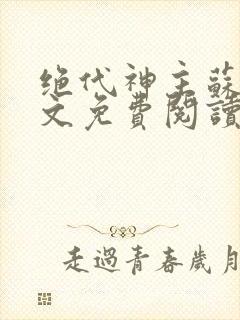 绝代神主蘇
文免費閱讀
走過青春歲月